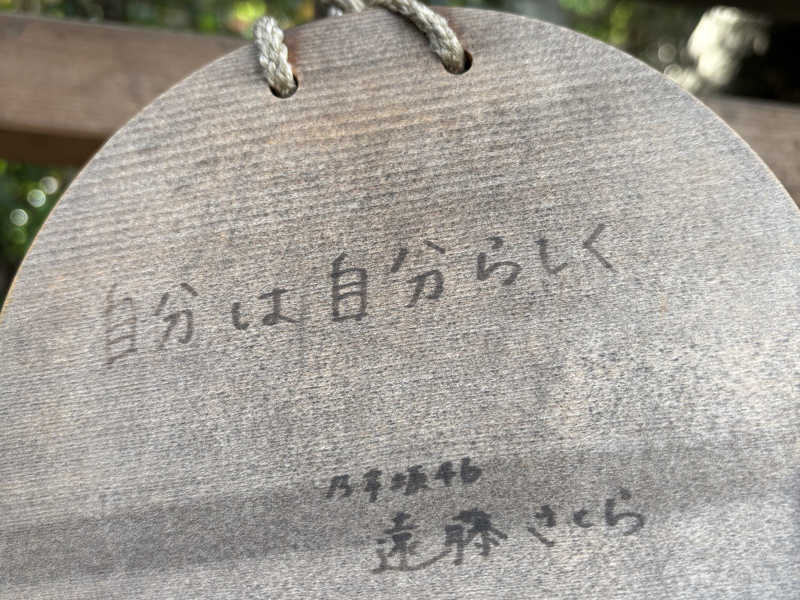 自分は自分らしく
乃木坂46
遠藤さくら